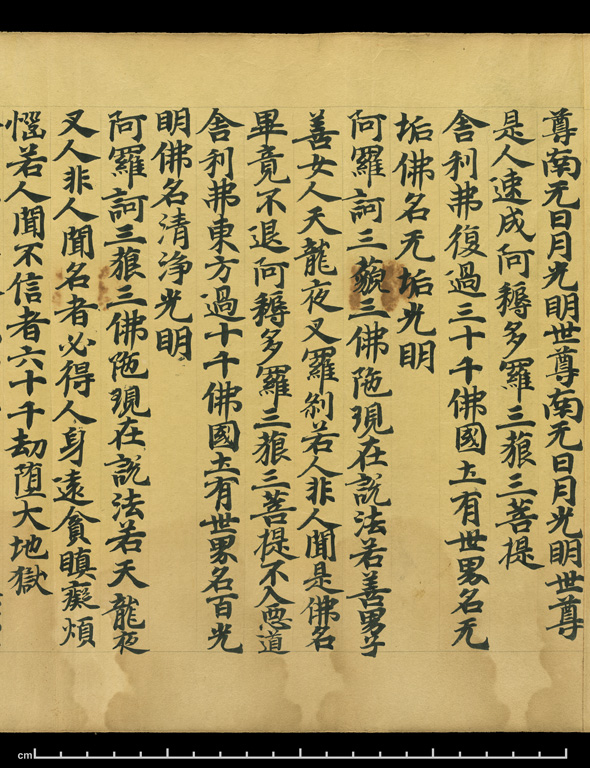 尊南无日月光明世尊南无日月光明世尊
是人速成阿耨多羅三藐三菩提
舎利弗復過三十千佛國土有世界名无
垢佛名无垢光明
阿羅訶三藐三佛陁現在說法若善男子
善女人天龍夜叉羅剎若人非人聞是佛名
畢竟不退阿耨多羅三藐三菩提不入惡道
舎利弗東方過十千佛國土有世界名百光
明佛名清淨光明
阿羅訶三藐三佛陁現在說法若天龍夜
叉人非人聞名者必得人身遠貧瞋癡煩
惱若人聞不信者六十千劫墮大地獄
cm